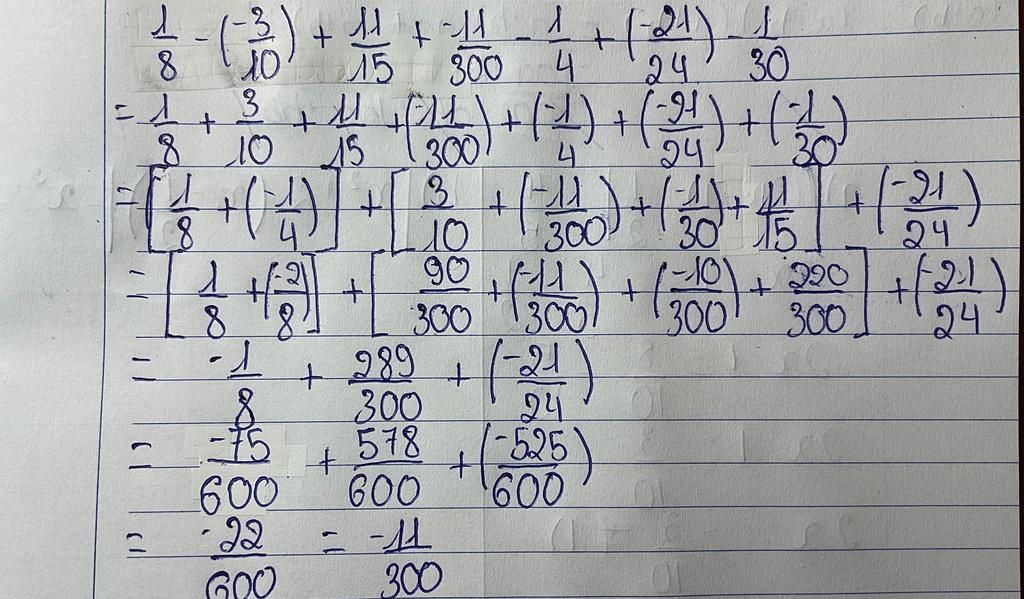 1/8 - (-3/10) + 11/15 + -11/300 - 1/4 + (-21/24) - 1/30
= 1/8 + 3/10 + 11/15 + (-11/300) + (-1/4) + (-21/24) + (-1/30)
= [1/8 + (-1/4)] + [3/10 + (-11/300) + (-1/30) + 11/15] + (-21/24)
= [1/8 + (-2/8)] + [90/300 + (-11/300) + (-10/300) + 220/300] + (-21/24)
= -1/8 + 289/300 + (-21/24)
= -75/600 + 578/600 + (-525/600)
= -22/600 = -11/300